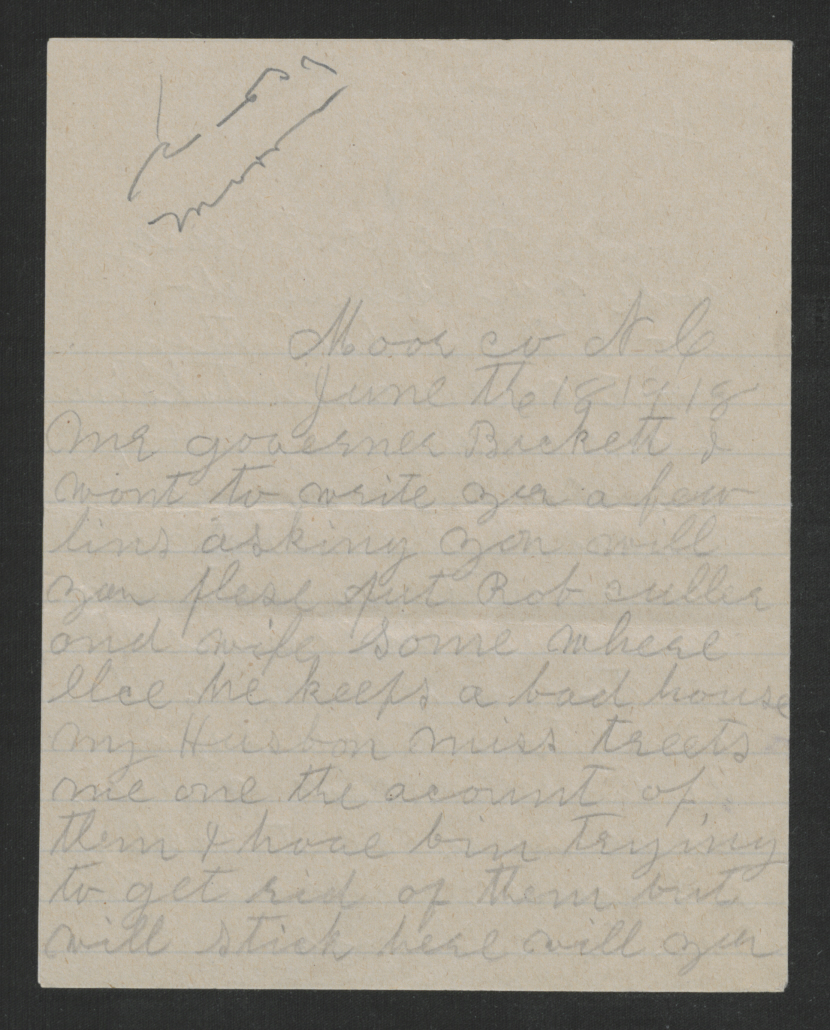 Moor co N.C
June th 18 1918
Mr governer Bickett I
wont to write you a few
lins asking you will
you plese put Rob culler
and wife some where
elce he keeps a bad house
my Husbon miss treets
me one the acount of
them I have bin trying
to get rid of them but
will stick here will you